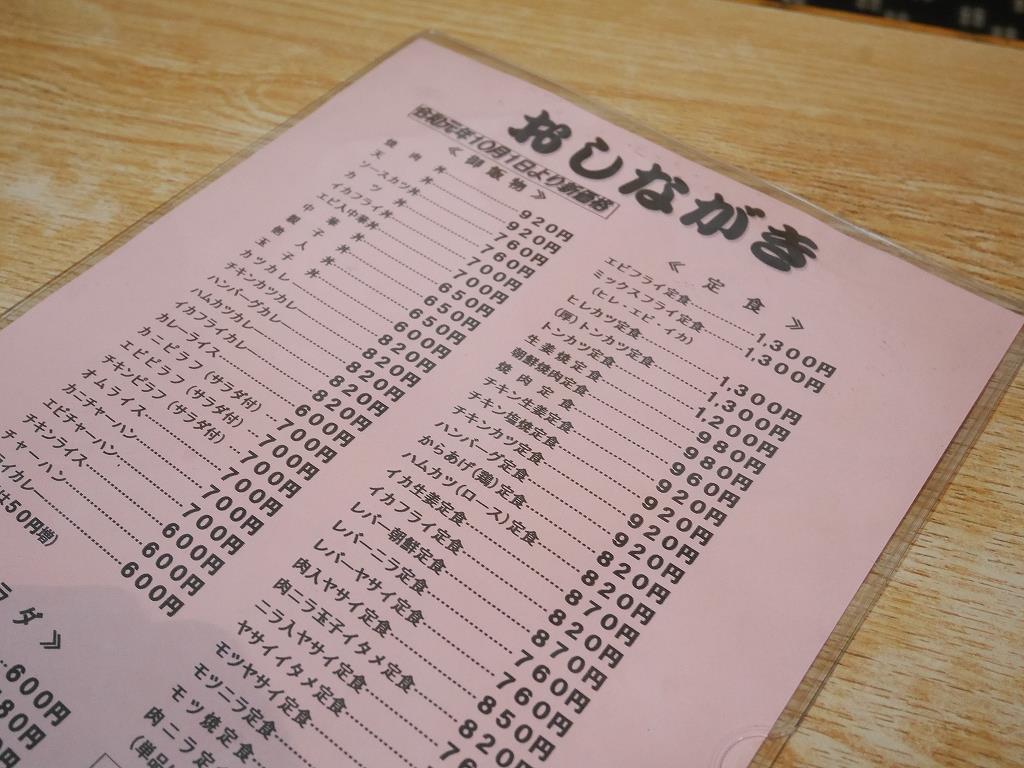 おしながき
令和元年10月1日より新価格
《御飯物》
焼肉丼 920円
天丼 920円
ソースカツ丼 760円
カツ丼 760円
イカフライ丼 700円
エビ入中華丼 700円
中華丼 650円
親子丼 650円
他人丼 600円
玉子丼 600円
カツカレー 820円
チキンカツカレー 820円
ハンバーグカレー 820円
ハムカツカレー 820円
イカフライカレー
カレーライス 600円
カニピラフ(サラダ付) 700円
エビピラフ(サラダ付) 700円
チキンピラフ(サラダ付) 700円
オムライス 700円
カニチャーハン 700円
エビチャーハン 700円
チキンライス 600円
チャーハン 600円
ライカレー 600円
は50円増)
ラダ》
600円
80円
《定食》
エビフライ定食 1,300円
ミックスフライ定食 1,300円
(ヒレ・エビ・イカ)
ヒレカツ定食 1,300円
(厚)トンカツ定食 1,300円
トンカツ定食 1,200円
生姜焼定食 980円
朝鮮焼肉定食 980円
焼肉定食 960円
チキン生姜定食 920円
チキン塩焼定食 920円
チキンカツ定食 920円
ハンバーグ定食 820円
からあげ(鶏)定食 820円
ハムカツ(ロース)定食 870円
イカ生姜定食 820円
イカフライ定食 870円
レバー朝鮮定食 760円
レバーニラ定食 760円
レバーヤサイ定食 850円
肉入ヤサイ定食 820円
肉ニラ玉子イタメ定食 76
ニラ入ヤサイ定食
ヤサイイタメ定食
モツヤサイ定食
モツニラ定食
モツ焼定食
肉ニラ定
(単品